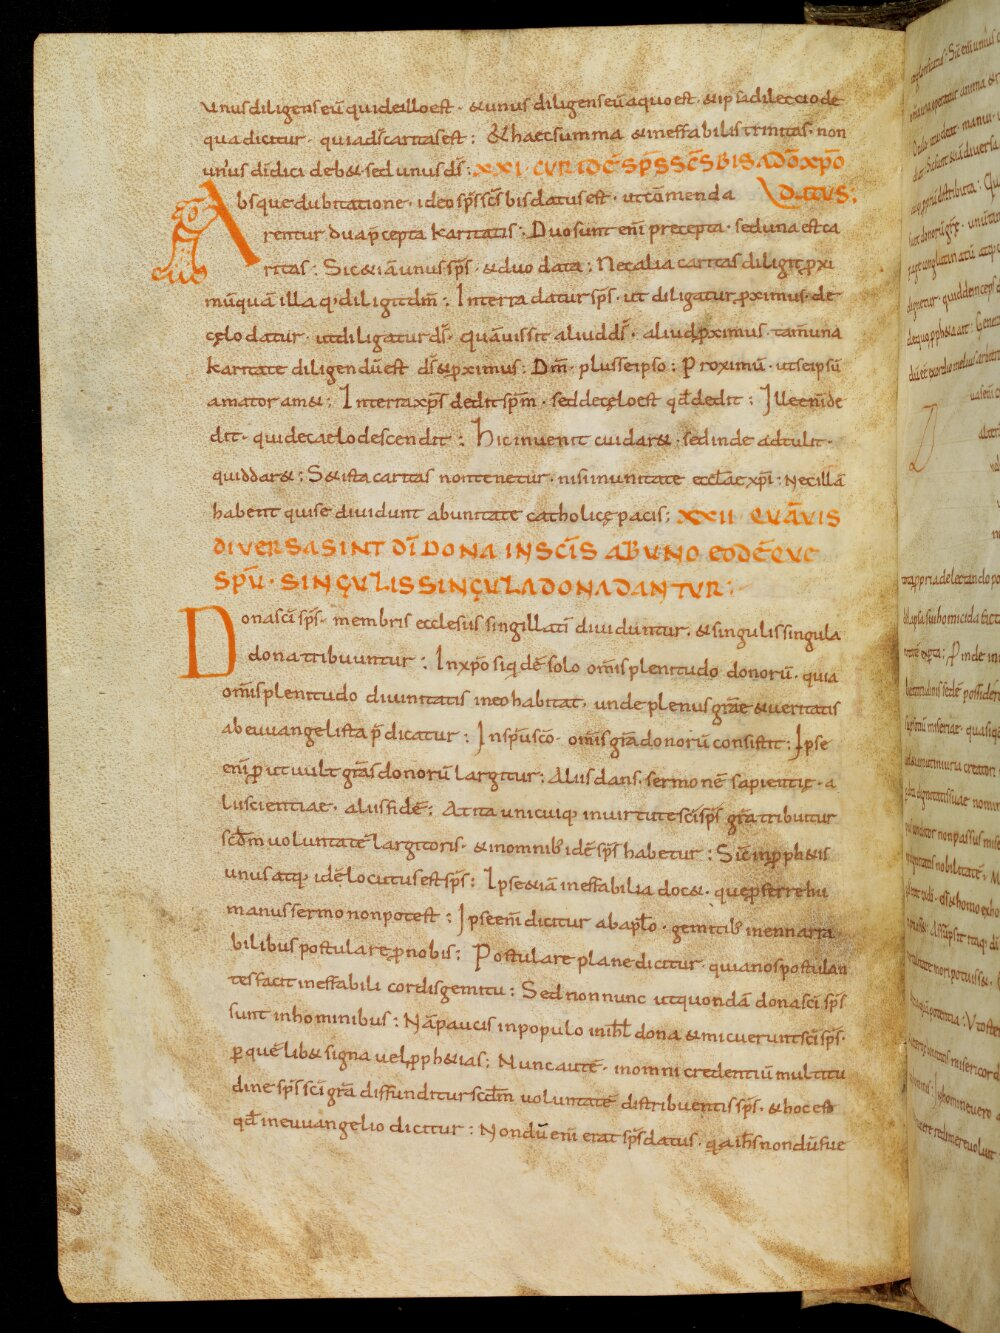 unus diligens eū qui de illo est · & unus diligens eū a quo est · & ipsa dileccio de
qua dicitur · quia d̄s caritas est : & haec summa & ineffabilis trinitas · non
unus dīdici deb& sed unus d̄s : XXI CUR IDĒ SP̄S SC̄S BIS A DŌ XPŌ
Absque dubitatione · ideo sp̄s sc̄s bis datus est · ut cōmenda DATUS :
rentur dua p̄cepta karitatis : Duo sunt enī precepta · sed una est ca
ritas : Sic & iā unus sp̄s · & duo data ; Nec alia caritas diligit ꝓxi
mū quā illa q· diligit dm̄ : In terra datur sp̄s · ut diligatur ꝓximus · de
cęlo datur · ut diligatur d̄s · quāuis sit aliud d̄s · aliud ꝓximus · tam̄ una
karitate diligendū est d̄s & ꝓximus : Dm̄ · plus se ipso : Proximū · ut se ipsū
amator am& : In terra xp̄s dedit sp̄m · sed de cęlo est qd̄ dedit : Ille enī de
dit · qui de caelo descendit : Hic invenit cui dar& · sed inde adtulit ·
quid dar& : S& ista caritas non tenetur · nisi in unitate eccl̄ae xp̄i : Nec illā
habent qui se dividunt ab unitate catholicę pacis : XXII QUĀVIS
DIVERSA SINT DĪ DONA IN SC̄IS AB UNO EODĒQUE
SPŪ · SINGULIS SINGULA DONA DANTUR :
Dona sc̄i sp̄s · membris ecclesiis singillatī dividuntur · & singulis singula
dona tribuuntur : In xp̄o siqdē solo om̄is plenitudo donorū · quia
om̄is plenitudo divinitatis in eo habitat · unde plenus grāe & veritatis
ab euuangelista p̄dicatur : In sp̄u sc̄o · om̄is grā donorū consistit : Ipse
enī ꝓ ut vult grās donorū largitur : Aliis dans · sermonē sapientię · a
liis scientiae · aliis fidē : At ita unicuiq· in virtute sc̄i sp̄s grā tribuitur
scdm̄ voluntatē largitoris · & in omnib· idē sp̄s habetur : Sic̄ in ꝓph&is
unus atq· idē locutus est sp̄s : Ipse & iā ineffabilia doc& · quę ꝓferre hu
manus sermo non potest : Ipse enī dicitur ab apl̄o · gemitib· inennarra
bilibus postulare ꝓ nobis : Postulare plane dicitur · quia nos postulan
tes facit ineffabili cordis gemitu : Sed non nunc ut quondā dona sc̄i sp̄s
sunt in hominibus : Nā paucis in populo in isrl̄ dona & micuerunt sc̄i sp̄s ·
ꝑ quēlib& signa vel ꝓph&ias : Nunc autē · in omni credentiū multitu
dine sp̄s sc̄i grā diffunditur scdm̄ voluntatē distribuentis sp̄s · & hoc est
qd̄ in euuangelio dicitur : Nondū enī erat sp̄s datus · qa ih̄s nondū fue